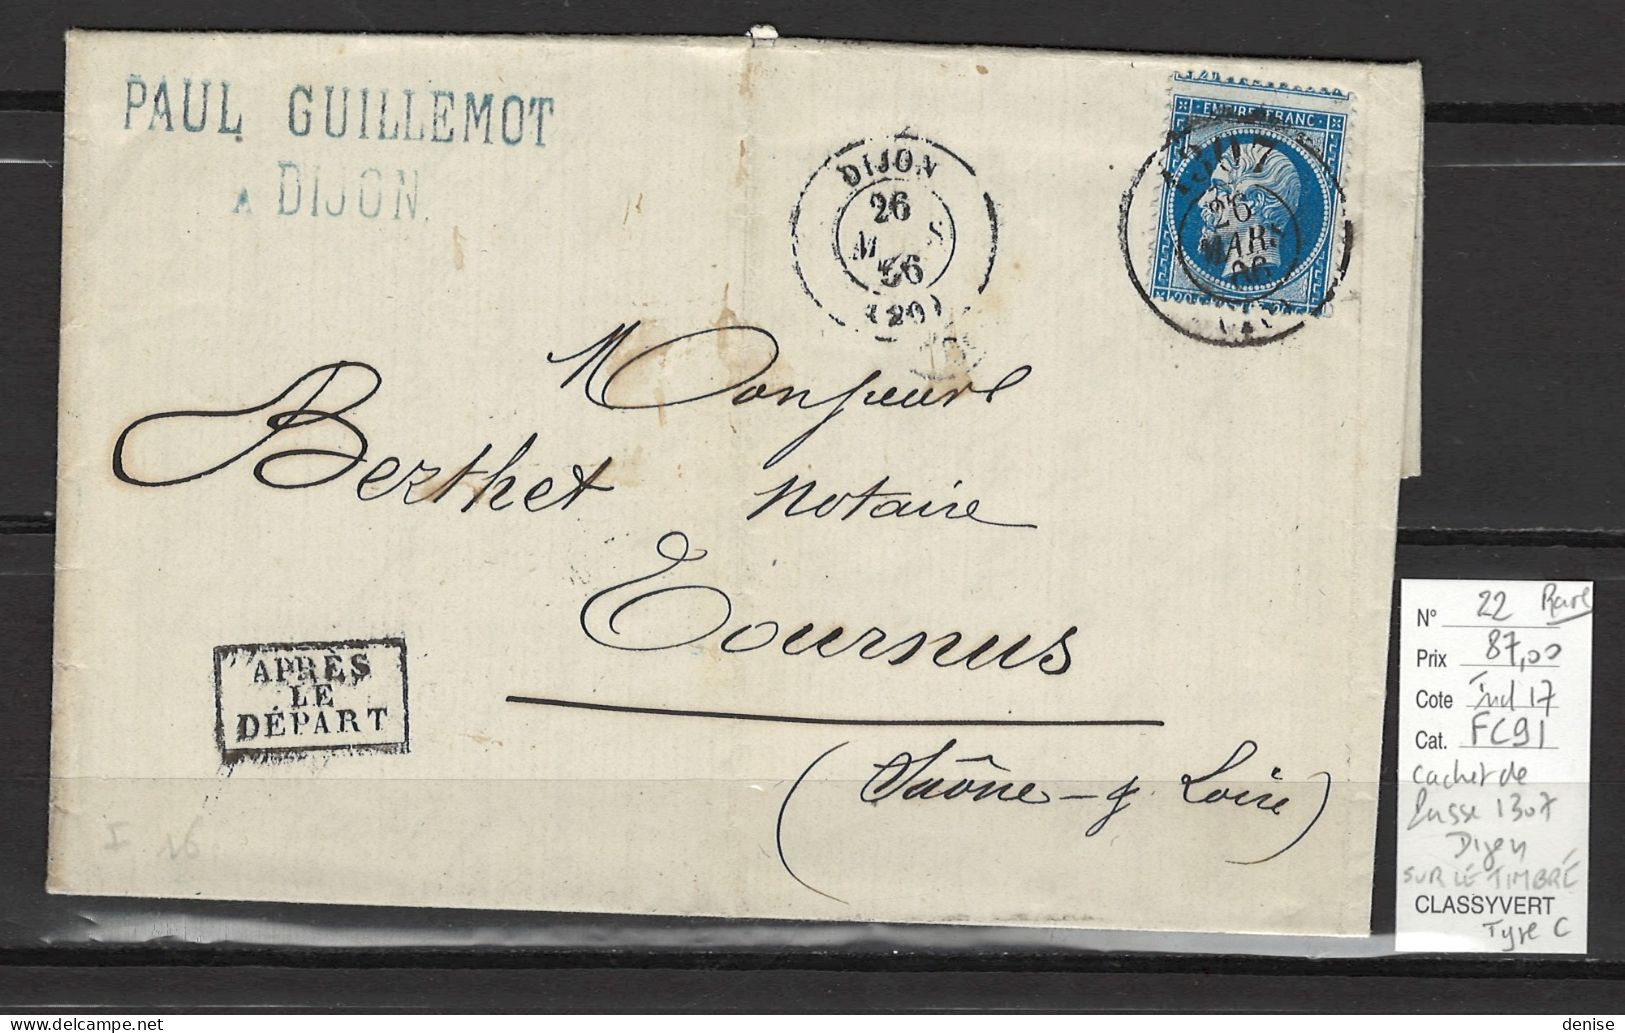 PAUL GUILLEMOT
A DIJON.
DIJON
26
M S
66
(20)
EMPIRE FRANC
1307
26
MARS
66
Monsieur
Berthet notaire
Tournus
(Saône-&-Loire)
APRÈS
LE
DÉPART
I 16
N° 22 Rare
Prix 87,00
Cote ind 17
Cat. FC91
cachet de
passe 1307
Dijon
SUR LE TIMBRE
CLASSYVERT
Type C
denise